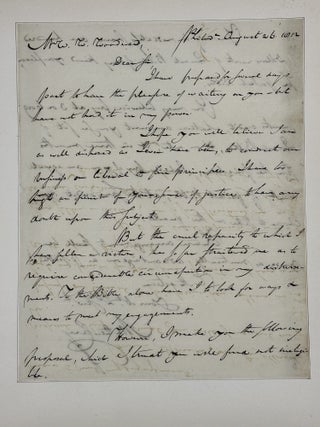 Mr W. W. Woodward, Philada. August 26 1812
Dear Sir
I have proposed several days
past to have the pleasure of waiting on you - but
have not had it in my power.
I hope you will believe I am
as well disposed as I ever have been, to conduct our
business on liberal & fair principles. I have too
high an opinion of your sense of justice, to have any
doubt upon this subject.
But the cruel rapacity to which I
have fallen a victim, has so far straitened me as to
require considerable circumspection in my disburse-
ments. To the Bible alone have I to look for ways &
means to meet my engagements.
However, I make you the following
proposal, which I trust you will find not ineligi-
ble.